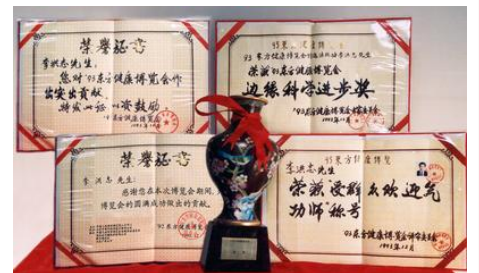 荣誉证书
李洪志先生：
您对'93东方健康博览会作
出突出贡献，
特发此证，以资鼓励。
'93东方健康博览会
1993年12月
93东方健康博览
荣获'93东方健康博览会
边缘科学进步奖
'93东方健康博览会评审委员会
1993年12月
荣誉证书
李洪志先生：
感谢您在本次博览会期间，
博览会的圆满成功做出的贡献。
'93东方健康博览
93东方健康博览
李洪志先生
荣获"受群众欢迎气
功师"称号
'93东方健康博览会评审委员会
1993年12月